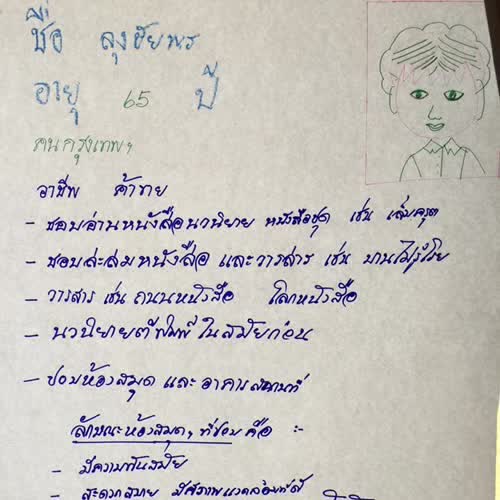 ชื่อ ลุงชัยพร
อายุ 65 ปี
คนกรุงเทพฯ
อาชีพ ค้าขาย
- ชอบอ่านหนังสือนวนิยาย หนังสือชุด เช่น
- ชอบสะสมหนังสือ และวารสาร เช่น บานไม่รู้โรย
- วารสาร เช่น ถนนหนังสือ โลกหนังสือ
- นวนิยายตีพิมพ์ในสมัยก่อน
- ชอบห้องสมุด และ อาคารสถานที่
ลักษณะห้องสมุดฯ ที่ชอบ คือ :-
- มีความทันสมัย
- สะดวกสบาย มีสภาพแวดล้อมที่ดี